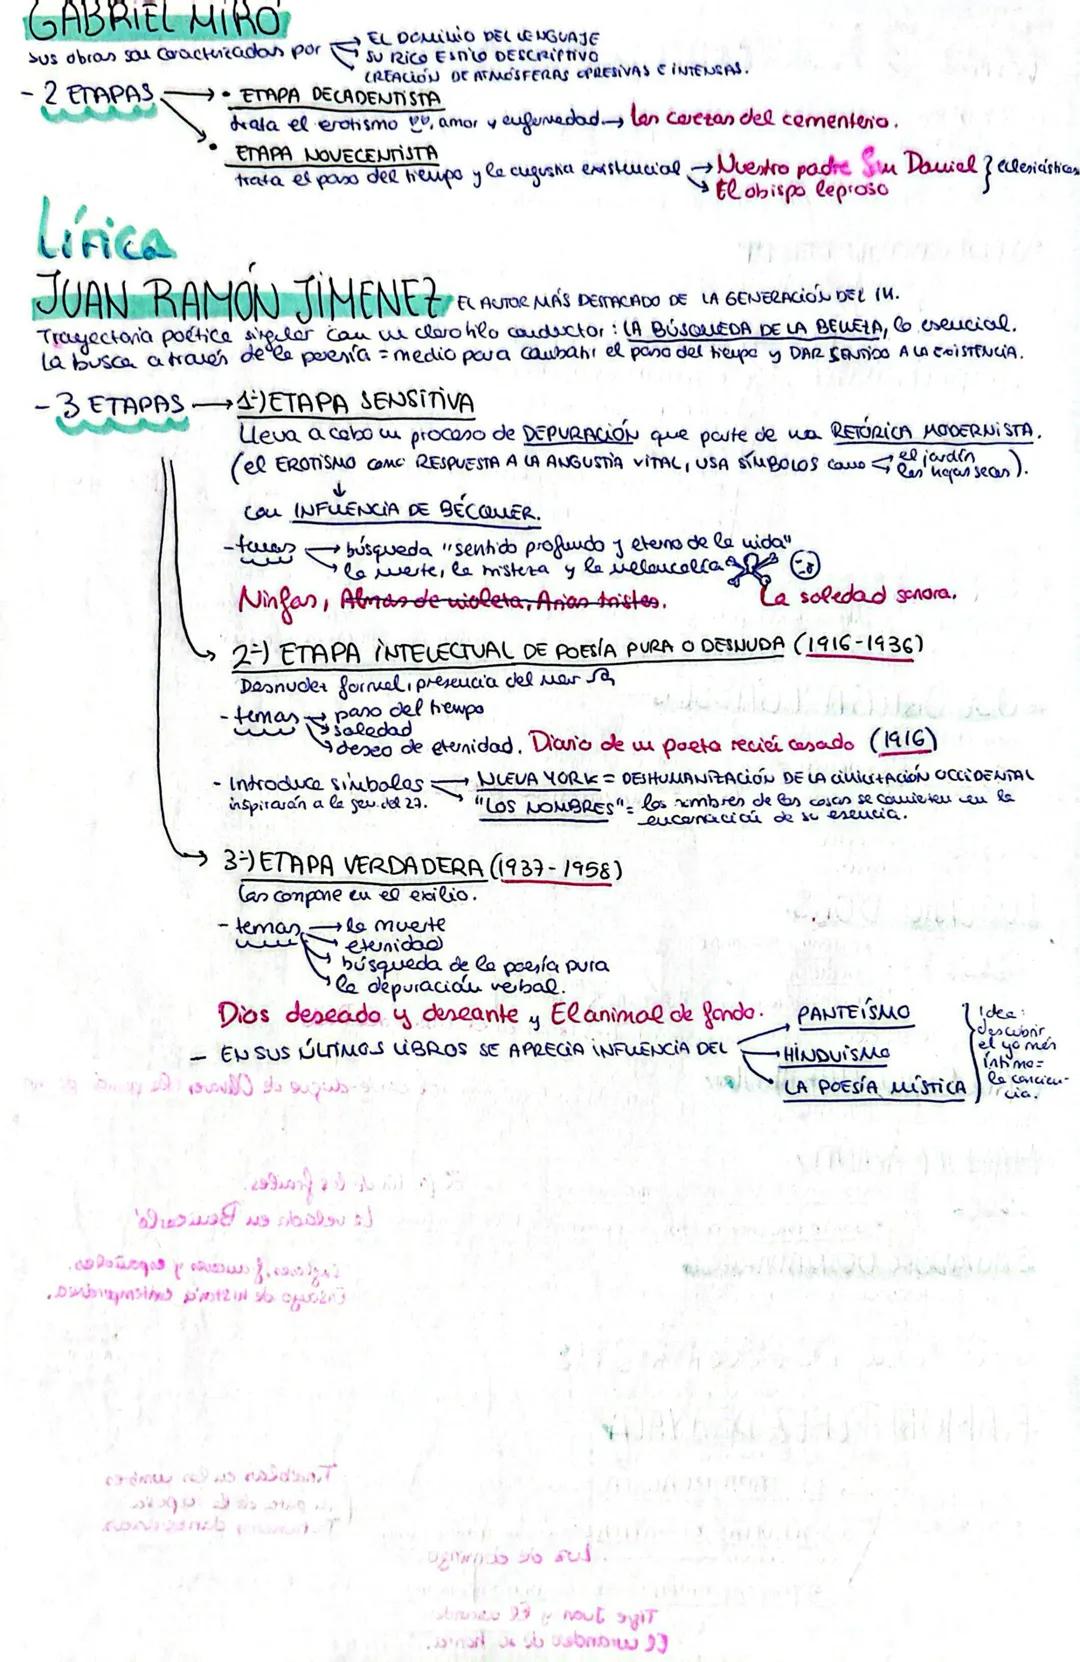 GABRIEL MIRÓ
Sus obras son caracterizadas por → EL DOMINIO DEL LENGUAJE
→ SU RICO ESTILO DESCRIPTIVO
CREACIÓN DE ATMÓSFERAS OPRESIVAS E INTENSAS.
- 2 ETAPAS → • ETAPA DECADENTISTA
trata el erotismo, amor y enfermedad → Las cerezas del cementerio.
• ETAPA NOVECENTISTA
trata el paso del tiempo y la angustia existencial → Nuestro padre San Daniel } eclesiásticas
→ El obispo leproso
Lírica
JUAN RAMÓN JIMENEZ EL AUTOR MÁS DESTACADO DE LA GENERACIÓN DEL 14.
Trayectoria poética singular con un claro hilo conductor: LA BÚSQUEDA DE LA BELLEZA, lo esencial.
La busca a través de la poesía = medio para combatir el paso del tiempo y DAR SENTIDO A LA EXISTENCIA.
- 3 ETAPAS → 1º) ETAPA SENSITIVA
Lleva a cabo un proceso de DEPURACIÓN que parte de una RETÓRICA MODERNISTA.
(el EROTISMO como RESPUESTA A LA ANGUSTIA VITAL, USA SÍMBOLOS como → el jardín
las hojas secas).
↓
con INFLUENCIA DE BÉCQUER.
- temas → búsqueda "sentido profundo y eterno de la vida"
→ la muerte, la tristeza y la melancolía
Ninfas, Almas de violeta, Arias tristes. La soledad sonora.
→ 2º) ETAPA INTELECTUAL DE POESÍA PURA O DESNUDA (1916-1936)
Desnudez formal, presencia del mar
- temas → paso del tiempo
→ soledad
→ deseo de eternidad. Diario de un poeta recién casado (1916)
- Introduce símbolos → NUEVA YORK = DESHUMANIZACIÓN DE LA CIVILIZACIÓN OCCIDENTAL
inspirarán a la gen. del 27. → "LOS NOMBRES" = los nombres de las cosas se convierten en la
encarnación de su esencia.
→ 3º) ETAPA VERDADERA (1937-1958)
Las compone en el exilio.
- temas → la muerte
→ eternidad
→ búsqueda de la poesía pura
→ la depuración verbal.
Dios deseado y deseante y El animal de fondo.
- EN SUS ÚLTIMOS LIBROS SE APRECIA INFLUENCIA DEL → PANTEÍSMO
→ HINDUÍSMO
→ LA POESÍA MÍSTICA
} idea:
descubrir
el yo más
íntimo =
la concien-
cia.